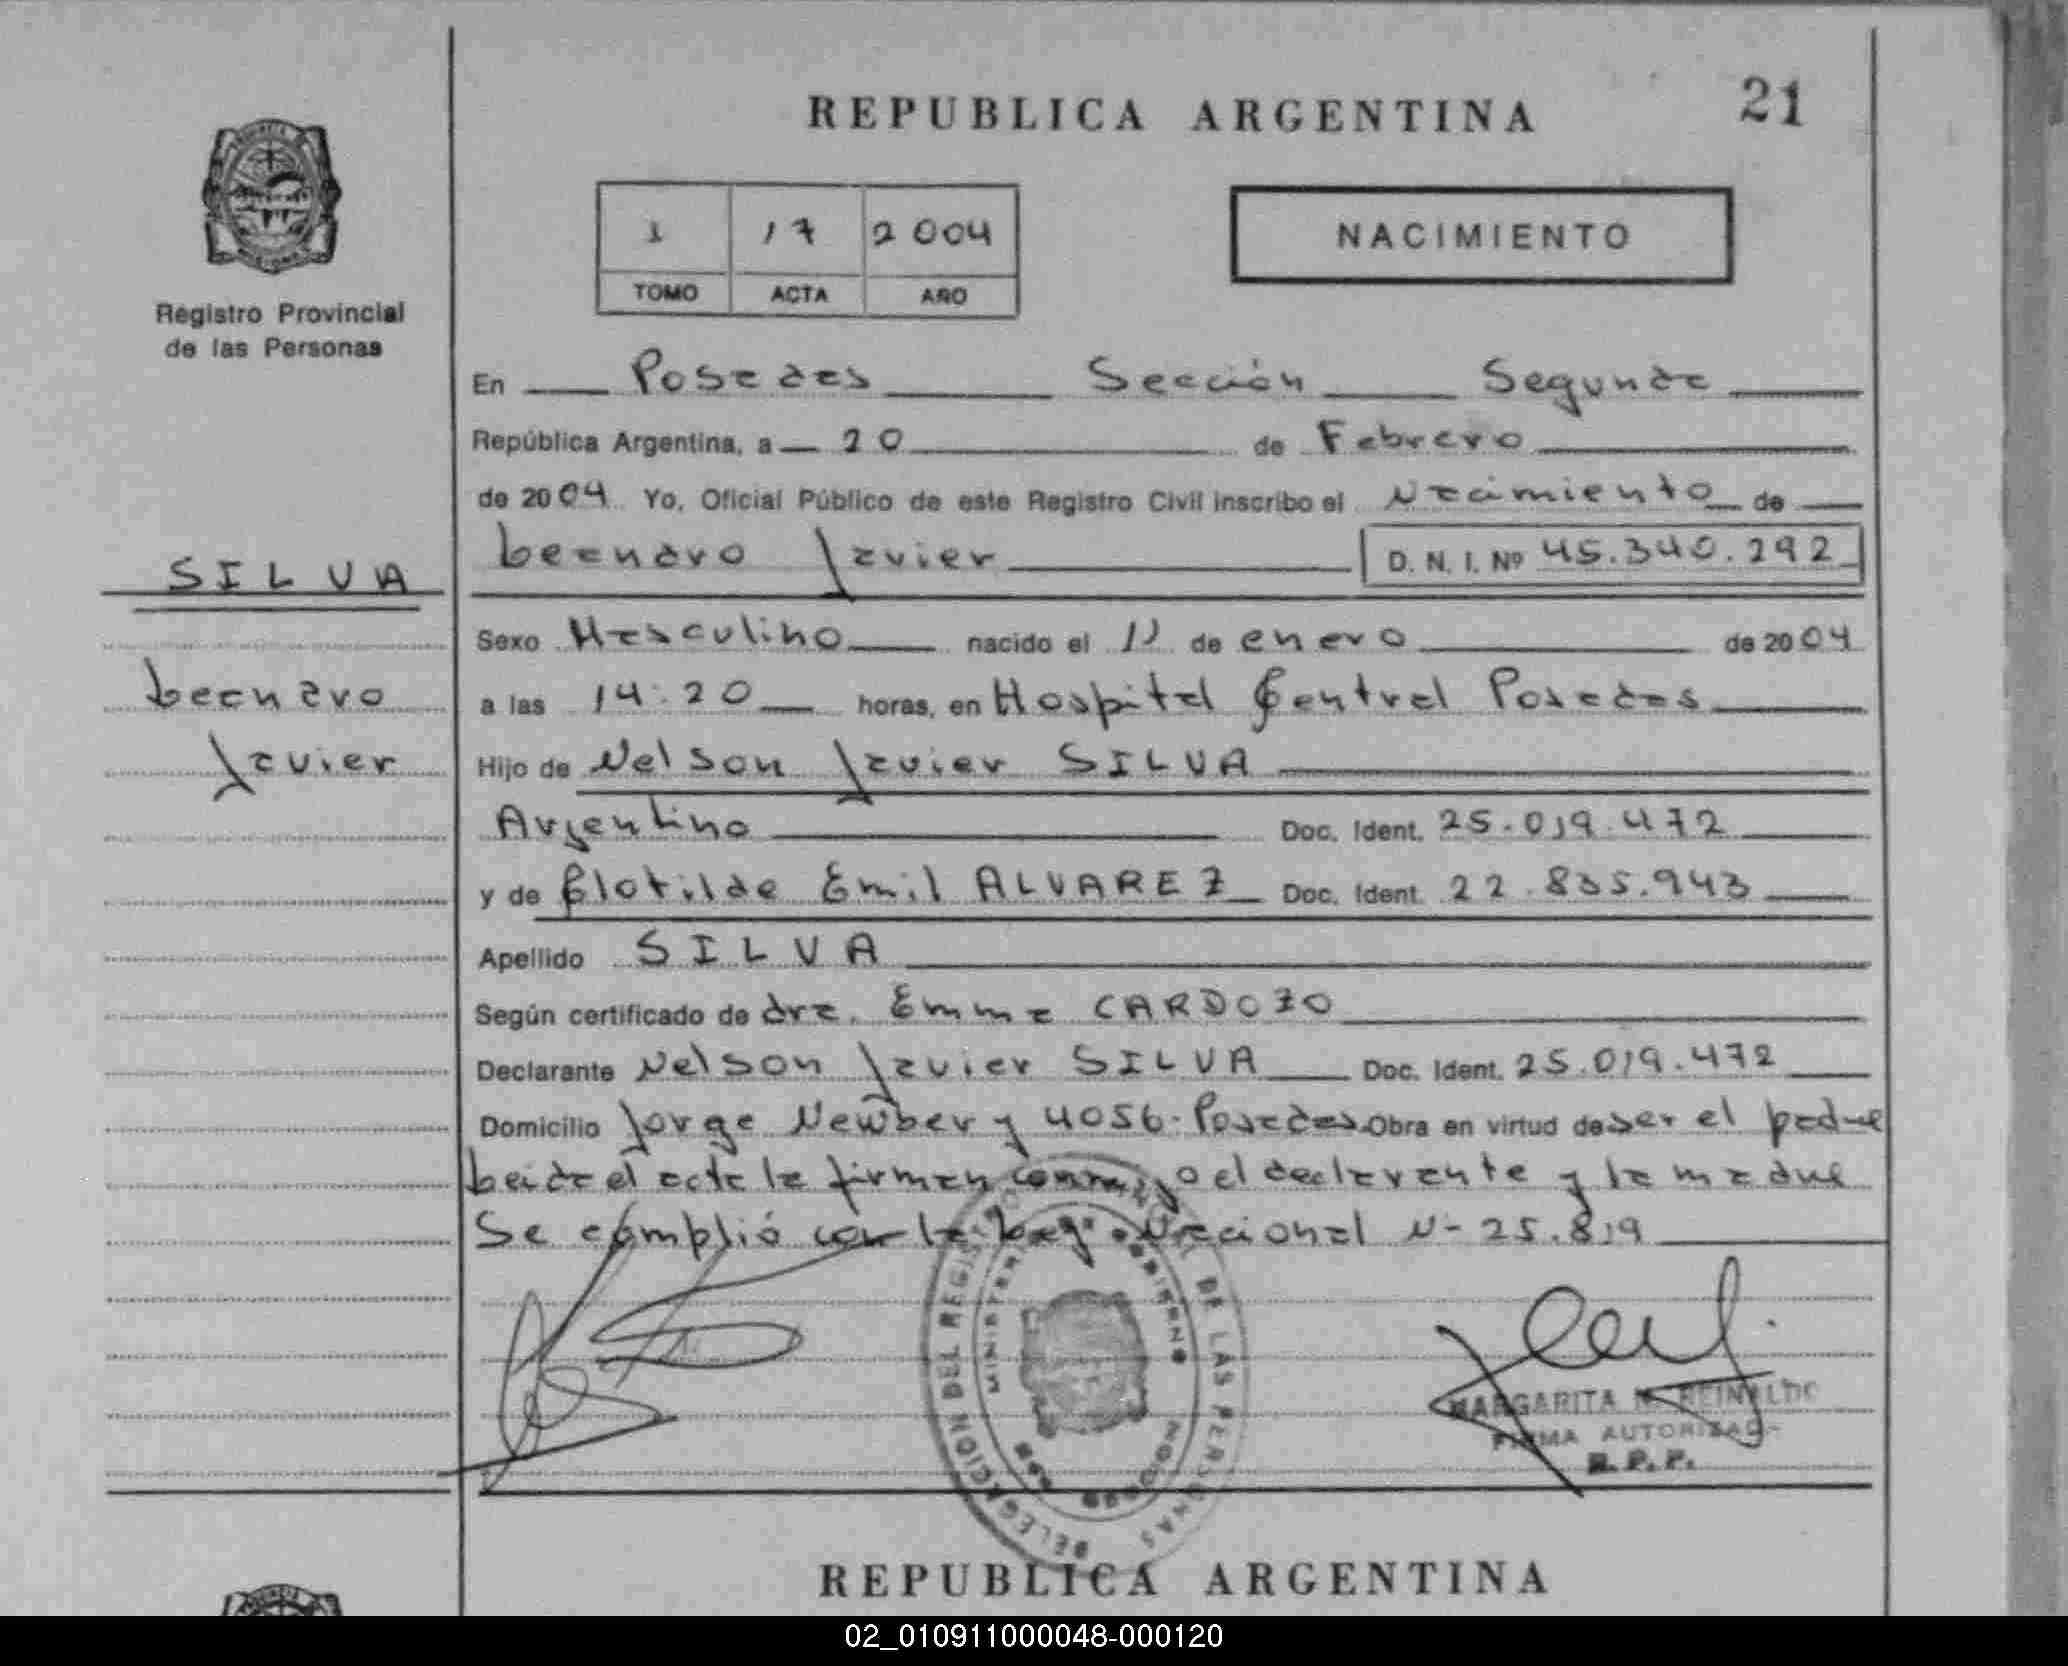 REPUBLICA ARGENTINA
21
1 17 2004
TOMO ACTA AÑO
NACIMIENTO
Registro Provincial
de las Personas
En Posadas Sección Segunda
República Argentina, a 20 de Febrero
de 2004 Yo, Oficial Público de este Registro Civil inscribo el Nacimiento de
Leandro Javier D. N. I. Nº 45.340.292
SILVA
Leandro
Javier
Sexo Masculino nacido el 11 de enero de 2004
a las 14:20 horas, en Hospital Central Posadas
Hijo de Nelson Javier SILVA
Argentino Doc. Ident. 25.019.472
y de Clotilde Emil ALVAREZ Doc. Ident. 22.835.943
Apellido SILVA
Según certificado de dra. Emma CARDOZO
Declarante Nelson Javier SILVA Doc. Ident. 25.019.472
Domicilio Jorge Newbery 4056-Posadas Obra en virtud de ser el padre
Leida el acta la firman conmigo el declarante y la madre
Se cumplió con la Ley Nacional N- 25.819
DELEGACION DEL REGISTRO DE LAS PERSONAS
MARGARITA REINALDO
FIRMA AUTORIZADA
R. P. P.
REPUBLICA ARGENTINA
02_010911000048-000120